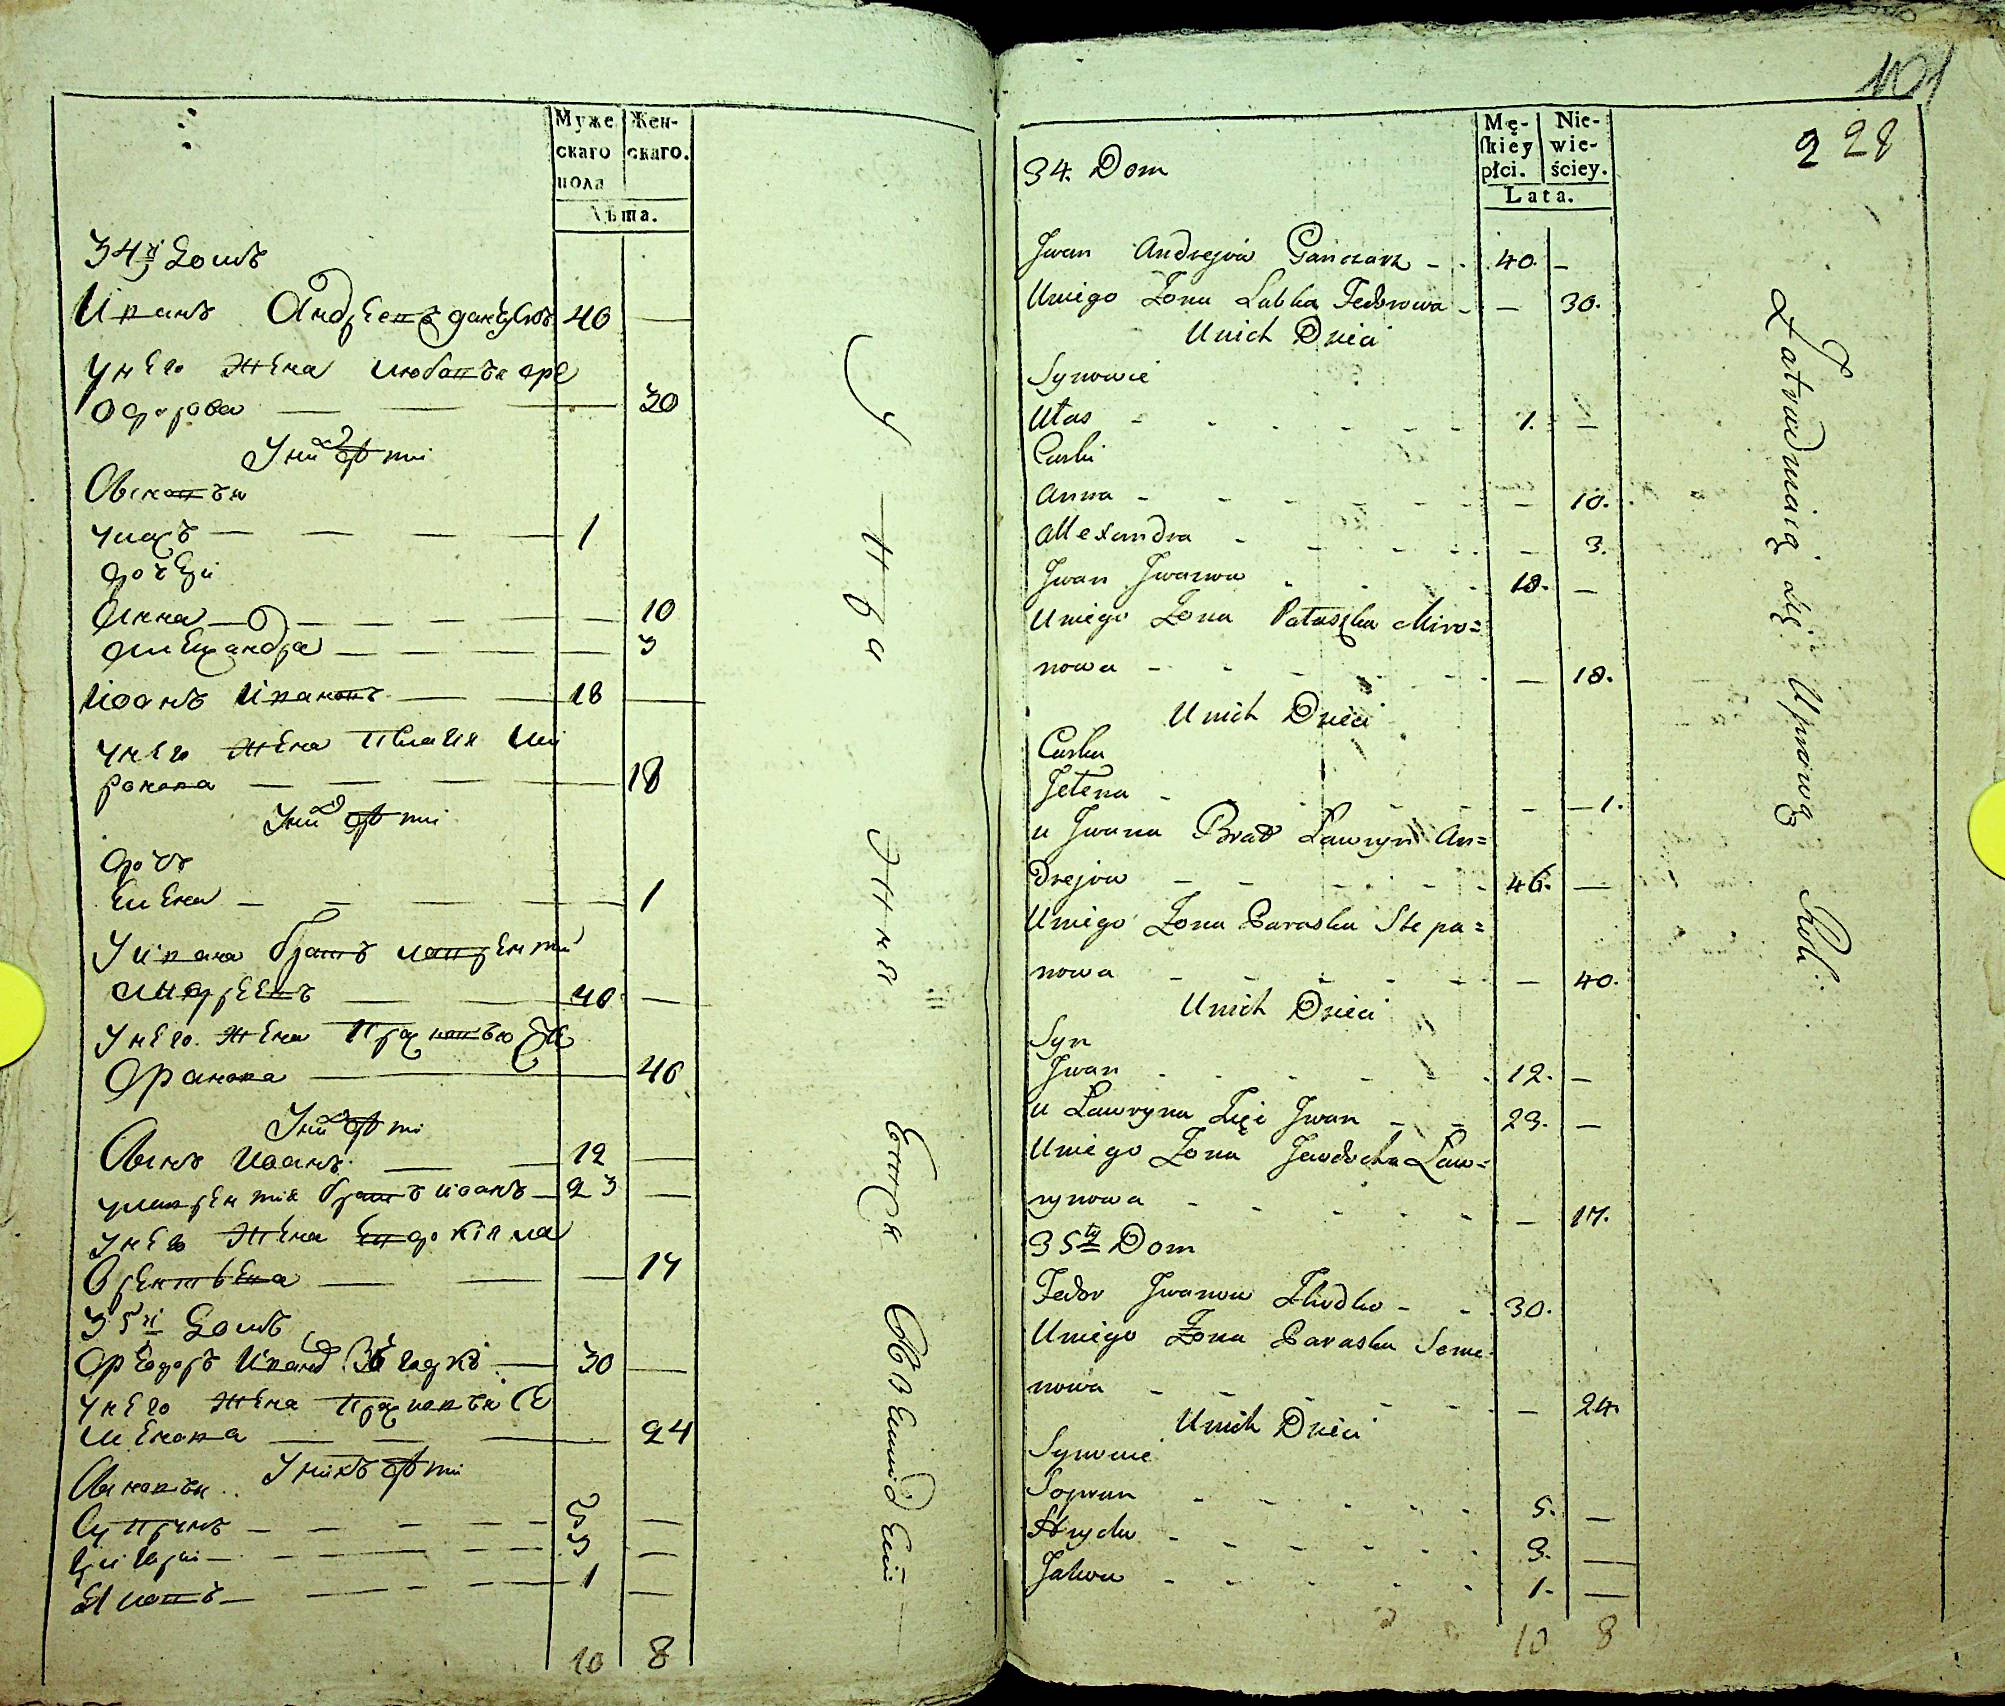 Муже
скаго
пола
Жен-
скаго.
Лѣта.
34й домъ
Иванъ Андреевъ ганчаръ 40 —
у него жена любовья фе
одорова — — — 30
У них дѣти
Сыновья
улас — — — — 1
дочери
Анна — — — — — 10
александра — — — — 3
Иоанъ Ивановъ — — 18 —
у него жена пелагия ми
ронова — — — — 18
У них дѣти
дочь
елена — — — — 1
У ивана братъ лаврентий
андреевъ — — 46 —
У него жена парасковья сте
фанова — 40
У них дѣти
Сынъ Иоанъ — — 12 —
у лаврентия братъ иоанъ — 23 —
у него жена евдокия ла
врентьева — — — 17
35й домъ
феодоръ Иванов — 30 —
у него жена парасковья се
менова — — — 24
У нихъ дѣти
Сыновья
Супрунъ — — — — 5 —
григори — — — — 3 —
Яковъ — — — — 1 —
10 8
У пра жня ются Во земле дели
101
228
34. Dom
Mę-
skiey
płci.
Nie-
wie-
ściey.
Lata.
Iwan Andrejów Ganczarz - - 40. —
U niego Żona Lubka Fedorowa - — 30.
U nich Dzieci
Synowie
Ułas - - - - - - 1. —
Curki
Anna - - - - - - — 10.
Allexandra - - - - - — 3.
Iwan Iwanow - - - 18. —
U niego Żona Pałaszka Miro=
nowa - - - - - - — 18.
U nich Dzieci
Curka
Jełena - - - - - — 1.
u Iwana Brat Ławryn An=
drejow - - - - - - 46. —
U niego Żona Paraska Stepa=
nowa - - - - - - — 40.
U nich Dzieci
Syn
Iwan - - - - - - 12. —
u Ławryna Zięć Iwan - - 23. —
U niego Żona Jewdocha Ław=
rynowa - - - - - — 17.
35ty Dom
Fedor Iwanow - - 30.
U niego Żona Paraska Seme-
nowa - - - - - — 24.
U nich Dzieci
Synowie
Soprun - - - - - 5. —
Hryćko - - - - - - 3. —
Jakow - - - - - - 1. —
10 8
Zatrudniaią się Uprawą Roli.